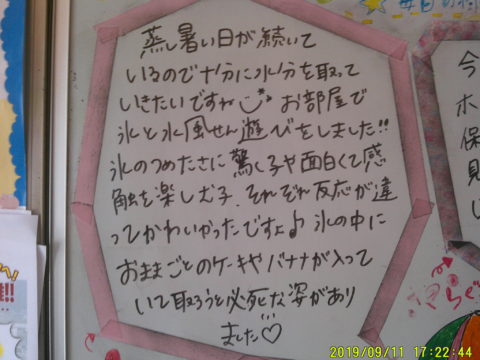 毎日の様
蒸し暑い日が続いて
いるので十分に水分を取って
いきたいですね お部屋で
氷と水風せん遊びをしました!!
氷のつめたさに驚く子や面白くて感
触を楽しむ子、それぞれ反応が違
ってかわいかったですよ♪ 氷の中に
おままごとのケーキやバナナが入って
いて取ろうと必死な姿があり
ました♡
今
ホ
保
見
し
2019/09/11 17:22:44